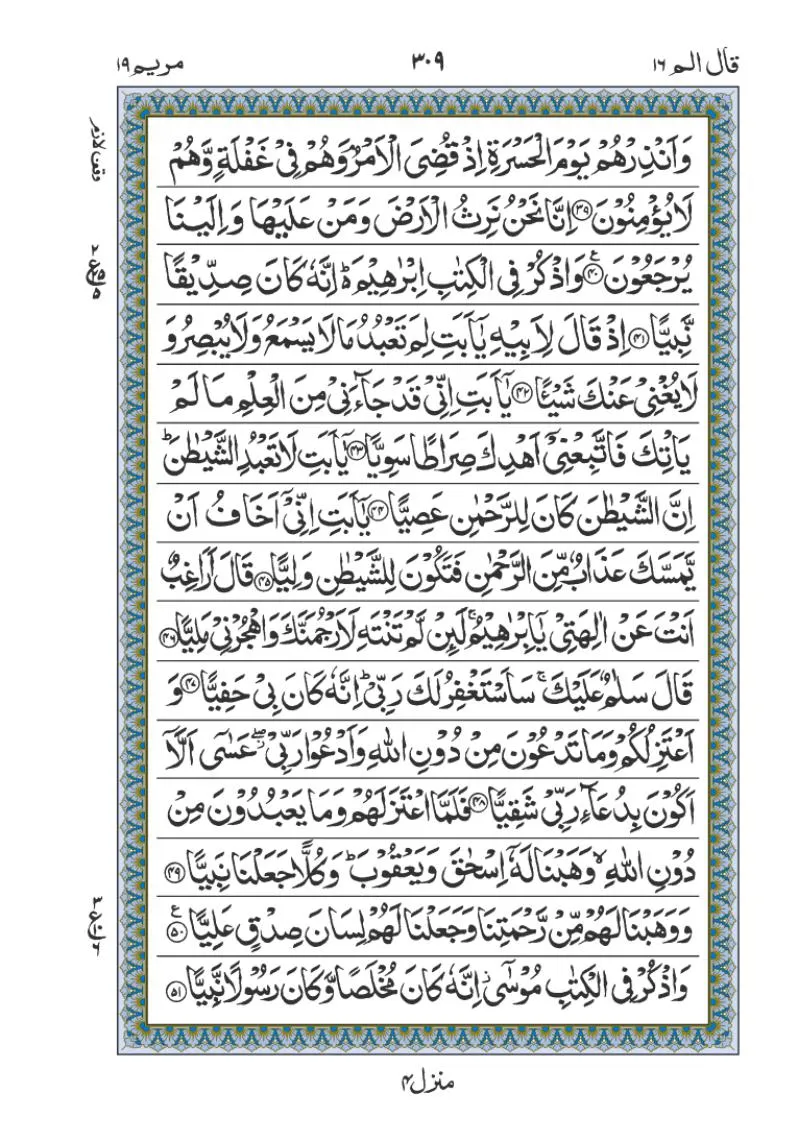 قال الم ١٦
٣٠٩
مريم ١٩
وَاَنْذِرْهُمْ يَوْمَ الْحَسْرَةِ اِذْ قُضِيَ الْاَمْرُ وَهُمْ فِيْ غَفْلَةٍ وَّهُمْ
لَا يُؤْمِنُوْنَ ﴿٣٩﴾ اِنَّا نَحْنُ نَرِثُ الْاَرْضَ وَمَنْ عَلَيْهَا وَاِلَيْنَا
يُرْجَعُوْنَ ﴿٤٠﴾ ع وَاذْكُرْ فِي الْكِتٰبِ اِبْرٰهِيْمَ ؕ اِنَّهٗ كَانَ صِدِّيْقًا
نَّبِيًّا ﴿٤١﴾ اِذْ قَالَ لِاَبِيْهِ يٰۤاَبَتِ لِمَ تَعْبُدُ مَا لَا يَسْمَعُ وَلَا يُبْصِرُ وَ
لَا يُغْنِيْ عَنْكَ شَيْـًٔا ﴿٤٢﴾ يٰۤاَبَتِ اِنِّيْ قَدْ جَآءَنِيْ مِنَ الْعِلْمِ مَا لَمْ
يَاْتِكَ فَاتَّبِعْنِيْۤ اَهْدِكَ صِرَاطًا سَوِيًّا ﴿٤٣﴾ يٰۤاَبَتِ لَا تَعْبُدِ الشَّيْطٰنَ ؕ
اِنَّ الشَّيْطٰنَ كَانَ لِلرَّحْمٰنِ عَصِيًّا ﴿٤٤﴾ يٰۤاَبَتِ اِنِّيْۤ اَخَافُ اَنْ
يَّمَسَّكَ عَذَابٌ مِّنَ الرَّحْمٰنِ فَتَكُوْنَ لِلشَّيْطٰنِ وَلِيًّا ﴿٤٥﴾ قَالَ اَرَاغِبٌ
اَنْتَ عَنْ اٰلِهَتِيْ يٰۤاِبْرٰهِيْمُ ۚ لَئِنْ لَّمْ تَنْتَهِ لَاَرْجُمَنَّكَ وَاهْجُرْنِيْ مَلِيًّا ﴿٤٦﴾
قَالَ سَلٰمٌ عَلَيْكَ ۚ سَاَسْتَغْفِرُ لَكَ رَبِّيْ ؕ اِنَّهٗ كَانَ بِيْ حَفِيًّا ﴿٤٧﴾ وَ
اَعْتَزِلُكُمْ وَمَا تَدْعُوْنَ مِنْ دُوْنِ اللّٰهِ وَاَدْعُوْا رَبِّيْ ۖ عَسٰۤى اَلَّاۤ
اَكُوْنَ بِدُعَآءِ رَبِّيْ شَقِيًّا ﴿٤٨﴾ فَلَمَّا اعْتَزَلَهُمْ وَمَا يَعْبُدُوْنَ مِنْ
دُوْنِ اللّٰهِ ۙ وَهَبْنَا لَهٗۤ اِسْحٰقَ وَيَعْقُوْبَ ؕ وَكُلًّا جَعَلْنَا نَبِيًّا ﴿٤٩﴾
وَوَهَبْنَا لَهُمْ مِّنْ رَّحْمَتِنَا وَجَعَلْنَا لَهُمْ لِسَانَ صِدْقٍ عَلِيًّا ﴿٥٠﴾ ع
وَاذْكُرْ فِي الْكِتٰبِ مُوْسٰۤى ؗ اِنَّهٗ كَانَ مُخْلَصًا وَّكَانَ رَسُوْلًا نَّبِيًّا ﴿٥١﴾
منزل ٤